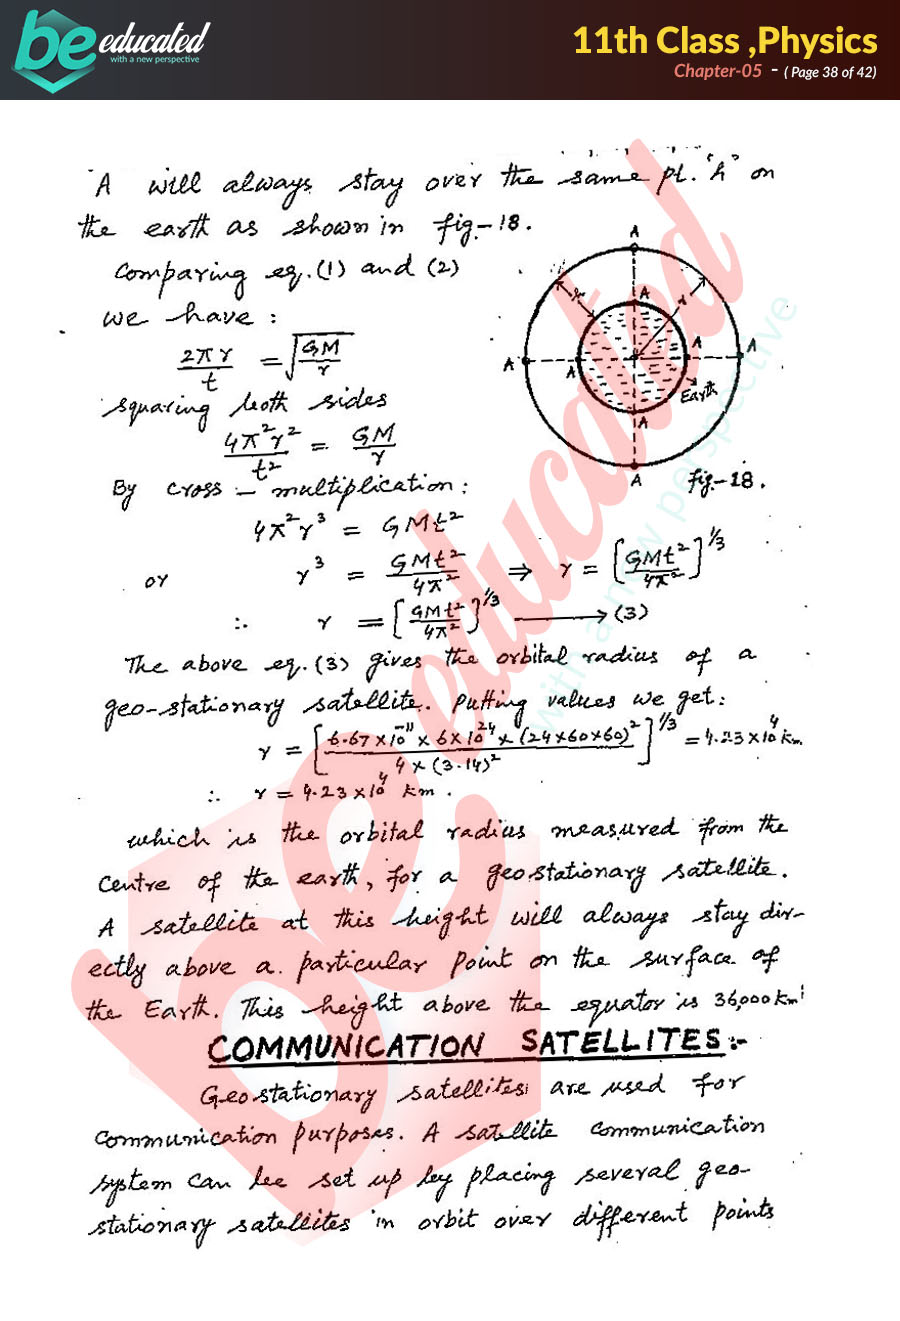 be educated
with a new perspective
11th Class ,Physics
Chapter-05 - ( Page 38 of 42)
A will always stay over the same pt. "A" on
the earth as shown in fig-18.
Comparing eq.(1) and (2)
we have :
2πr/t = √(GM/r)
Squaring both sides
4π²r²/t² = GM/r
By cross-multiplication:
4π²r³ = GMt²
or r³ = GMt²/4π² ⇒ r = [GMt²/4π²]^1/3
∴ r = [GMt²/4π²]^1/3 → (3)
A
A
A
A
A
A
A
A
r
Earth
fig-18.
The above eq.(3) gives the orbital radius of a
geo-stationary satellite. Putting values we get:
r = [6.67×10⁻¹¹ × 6×10²⁴ × (24×60×60)² / 4×(3.14)²]^1/3 = 4.23×10⁴ km
∴ r = 4.23×10⁴ km.
which is the orbital radius measured from the
centre of the earth, for a geostationary satellite.
A satellite at this height will always stay dir-
ectly above a particular point on the surface of
the Earth. This height above the equator is 36,000 km
COMMUNICATION SATELLITES:-
Geostationary satellites are used for
communication purposes. A satellite communication
system can be set up by placing several geo-
stationary satellites in orbit over different points
be educated
with a new perspective